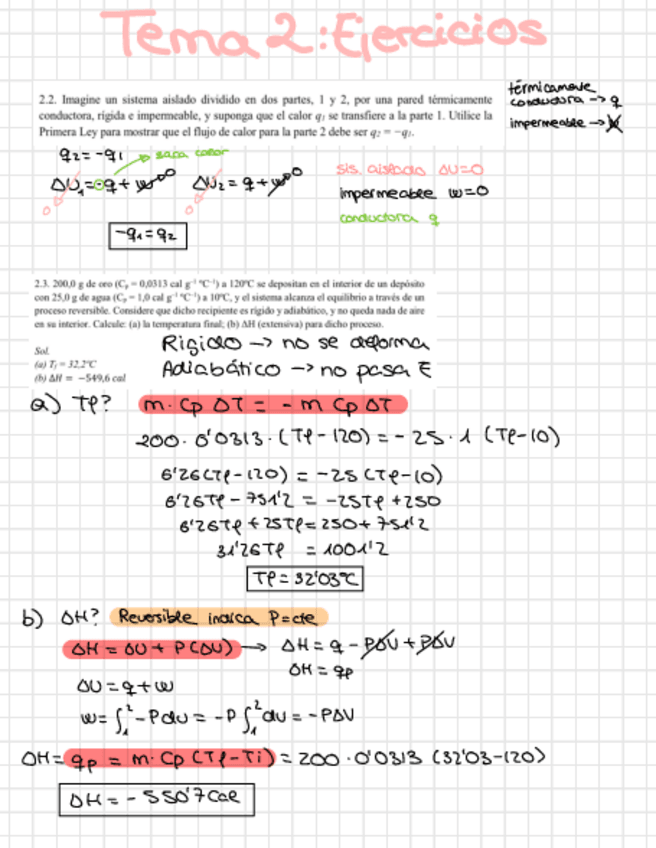 Tema 2: Ejercicios
2.2. Imagine un sistema aislado dividido en dos partes, 1 y 2, por una pared térmicamente
conductora, rígida e impermeable, y suponga que el calor q₁ se transfiere a la parte 1. Utilice la
Primera Ley para mostrar que el flujo de calor para la parte 2 debe ser q₂ = −q₁.
térmicamente
conductora -> q
impermeable -> w
q₂ = -q₁ -> saca calor
ΔU₁ = -q + w 0 ΔU₂ = q + w 0
0 0
sis. aislado ΔU=0
impermeable w=0
conductora q
-q₁ = q₂
2.3. 200,0 g de oro (Cₚ = 0,0313 cal g⁻¹ °C⁻¹) a 120°C se depositan en el interior de un depósito
con 25,0 g de agua (Cₚ = 1,0 cal g⁻¹ °C⁻¹) a 10°C, y el sistema alcanza el equilibrio a través de un
proceso reversible. Considere que dicho recipiente es rígido y adiabático, y no queda nada de aire
en su interior. Calcule: (a) la temperatura final; (b) ΔH (extensiva) para dicho proceso.
Sol.
(a) Tf = 32,2°C
(b) ΔH = −549,6 cal
Rigido -> no se deforma
Adiabático -> no pasa E
a) Tf? m · Cp ΔT = - m Cp ΔT
200 · 0'0313 · (Tf - 120) = - 25 · 1 (Tf - 10)
6'26 (Tf - 120) = -25 (Tf - 10)
6'26Tf - 751'2 = -25Tf + 250
6'26Tf + 25Tf = 250 + 751'2
31'26Tf = 1001'2
Tf = 32'03°C
b) ΔH? Reversible indica P=cte
ΔH = ΔU + P(ΔU) -> ΔH = q - PΔU + PΔU
ΔH = qp
ΔU = q + w
w = ∫₁² -Pdu = -P ∫₁² du = -PΔU
ΔH = qp = m · Cp (Tf - Ti) = 200 · 0'0313 (32'03 - 120)
ΔH = - 550'7 cal